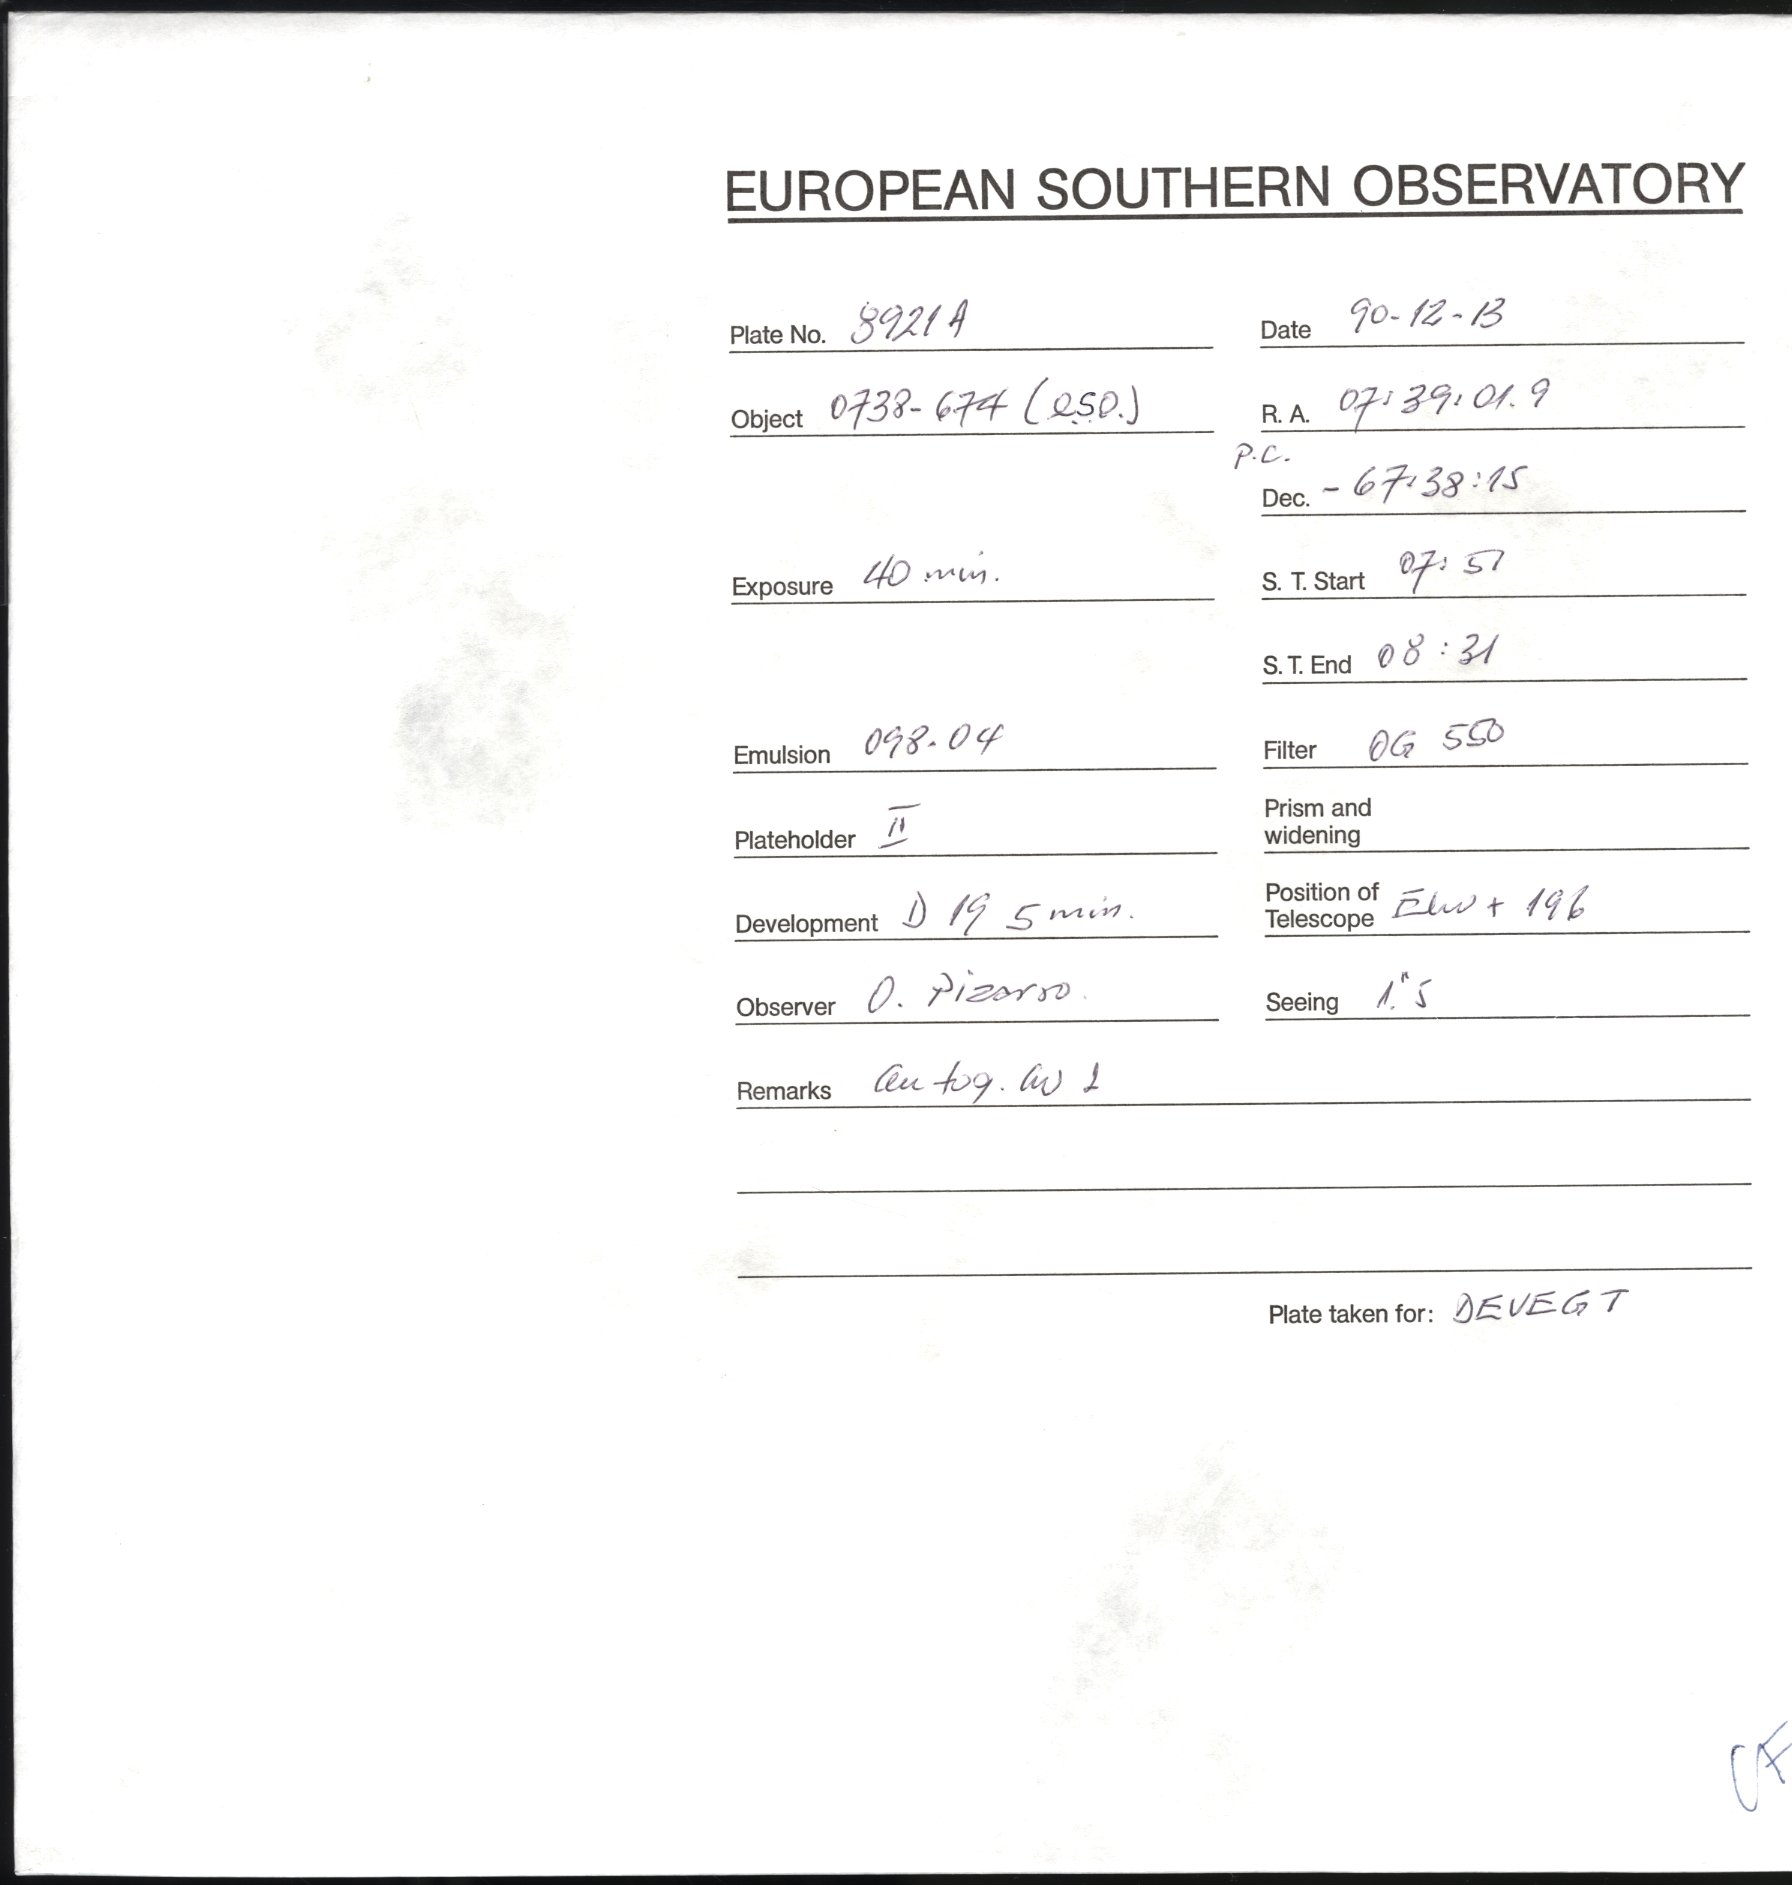 EUROPEAN SOUTHERN OBSERVATORY
Plate No. 8921A Date 90-12-13
Object 0738-674 (e.s.o.) R. A. 07:39:01.9
P.C.
Dec. - 67:38:15
Exposure 40 min. S. T. Start 07:51
S. T. End 08:31
Emulsion 098-04 Filter OG 550
Plateholder II Prism and
widening
Development D 19 5 min. Position of
Telescope + 196
Observer O. Pizarro. Seeing 1."5
Remarks autog.
Plate taken for: DEVEGT